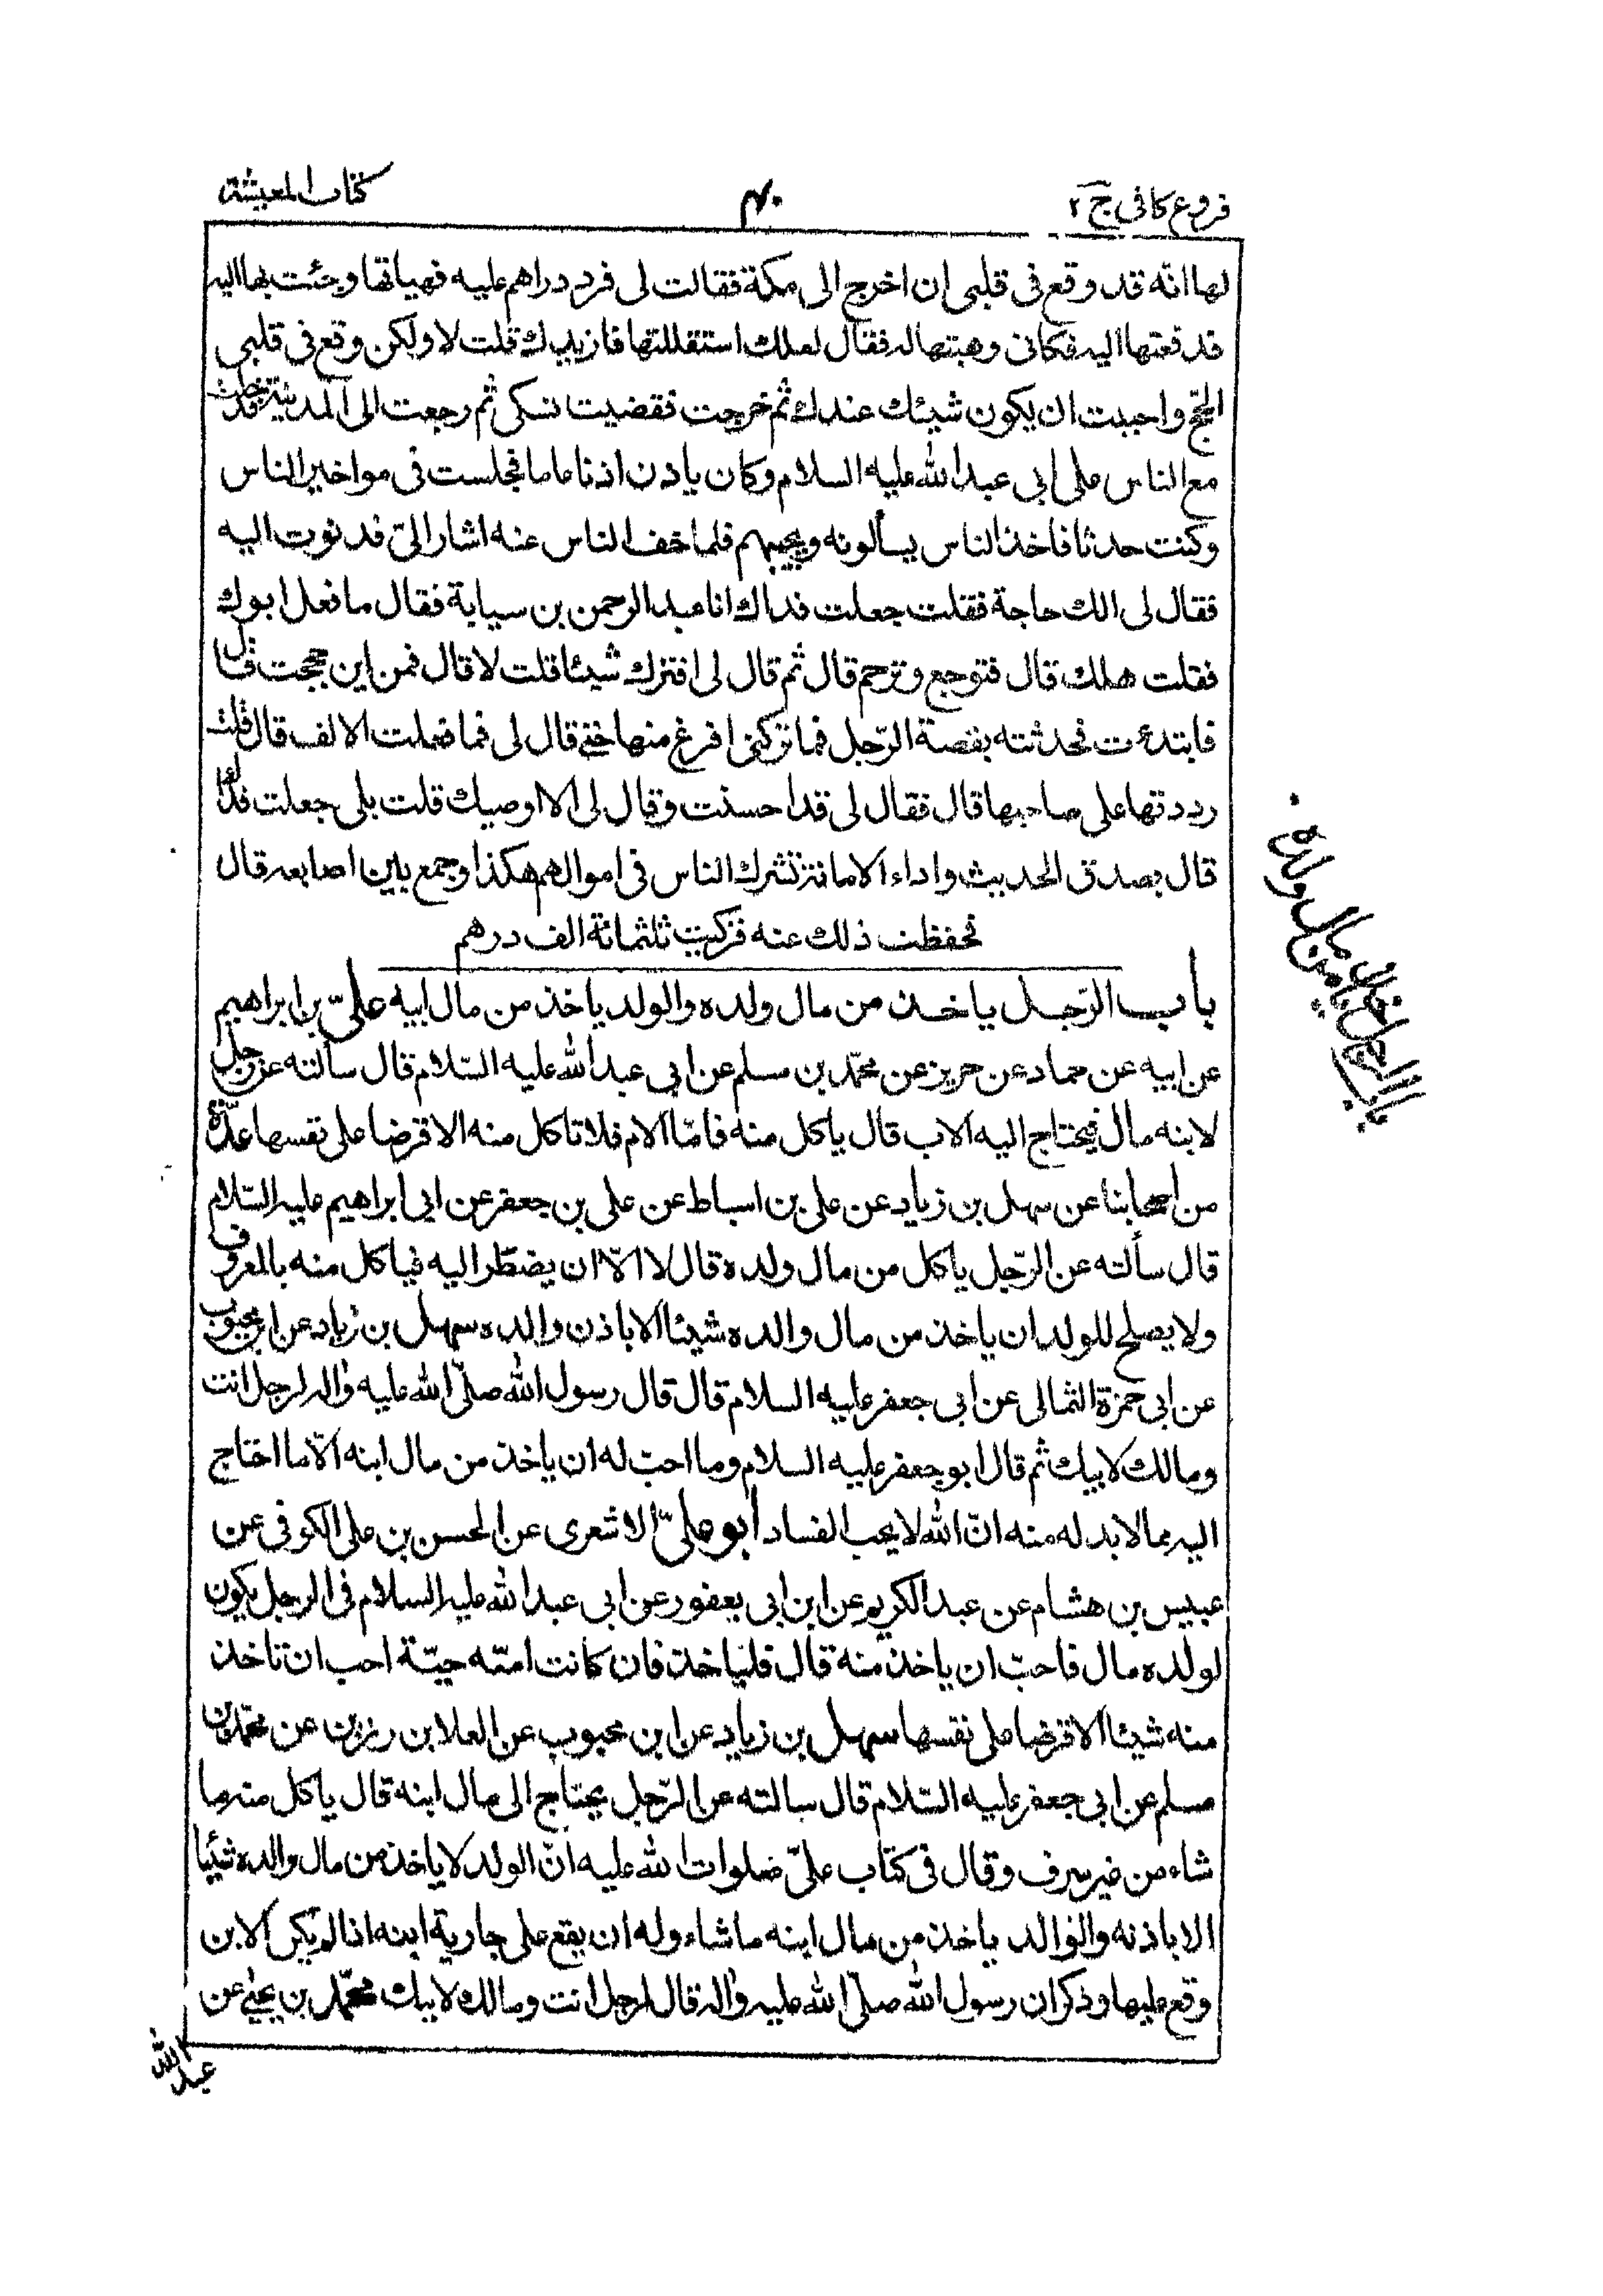 فروع كافى ج ٢
٤٠
كتاب المعيشة
لها انّه قد وقع فى قلبى ان اخرج الى مكة فقالت لى فرد دراهم عليه فهياتها وجئت بها اليه
فدفعتها اليه فكانى وهبتها له فقال لعلك استقللتها فازيدك قلت لا ولكن وقع فى قلبى
الحجّ واحببت ان يكون شيئك عندك ثم خرجت فقضيت نسكى ثم رجعت الى المدينة فدخلت
مع الناس على ابى عبد الله عليه السلام وكان ياذن اذنا عاما فجلست فى مواخير الناس
وكنت حدثا فاخذ الناس يسألونه ويجيبهم فلما خف الناس عنه اشار الىّ فدنوت اليه
فقال لى الك حاجة فقلت جعلت فداك انا عبد الرحمن بن سيابة فقال ما فعل ابوك
فقلت هلك قال فتوجع وترحم قال ثم قال لى افترك شيئا قلت لا قال فمن اين حججت قال
فابتدءت فحدثته بقصة الرّجل فما تركنى افرغ منها حتى قال لى فما فعلت الالف قال قلت
رددتها على صاحبها قال فقال لى قد احسنت وقال لى الا اوصيك قلت بلى جعلت فداك
قال بصدق الحديث واداء الامانة تشرك الناس فى اموالهم هكذا وجمع بين اصابعه قال
فحفظت ذلك عنه فزكيت ثلثمائة الف درهم
باب الرّجل ياخذ من مال ولده والولد ياخذ من مال ابيه علىّ بن ابراهيم
عن ابيه عن حماد عن حريز عن محمّد بن مسلم عن ابى عبد الله عليه السّلام قال سألته عن رجل
لابنه مال فيحتاج اليه الاب قال ياكل منه فامّا الام فلا تاكل منه الا قرضا على نفسها عدّة
من اصحابنا عن سهل بن زياد عن على بن اسباط عن على بن جعفر عن ابى ابراهيم عليه السّلام
قال سألته عن الرّجل ياكل من مال ولده قال لا الّا ان يضطّر اليه فياكل منه بالمعروف
ولا يصلح للولد ان ياخذ من مال والده شيئا الا باذن والده سهل بن زياد عن ابن محبوب
عن ابى حمزة الثمالى عن ابى جعفر عليه السلام قال قال رسول الله صلّى الله عليه واله لرجل انت
ومالك لابيك ثم قال ابو جعفر عليه السلام وما احبّ له ان ياخذ من مال ابنه الّا ما احتاج
اليه مما لا بد له منه انّ الله لا يحب الفساد ابو علىّ الاشعرى عن الحسن بن على الكوفى عن
عبيس بن هشام عن عبد الكريم عن ابن ابى يعفور عن ابى عبد الله عليه السلام فى الرجل يكون
لولده مال فاحبّ ان ياخذ منه قال فلياخذ فان كانت امّه حيّة احب ان تاخذ
منه شيئا الا قرضا على نفسها سهل بن زياد عن ابن محبوب عن العلا بن رزين عن محمّد بن
مسلم عن ابى جعفر عليه السّلام قال سالته عن الرّجل يحتاج الى مال ابنه قال ياكل منه ما
شاء من غير سرف وقال فى كتاب علىّ صلوات الله عليه انّ الولد لا ياخذ من مال والده شيئا
الا باذنه والوالد ياخذ من مال ابنه ما شاء وله ان يقع على جارية ابنه اذا لم يكن الابن
وقع عليها وذكر ان رسول الله صلّى الله عليه واله قال لرجل انت ومالك لابيك محمّد بن يحيى عن
عبد الله
باب الرجل ياخذ من مال ولده